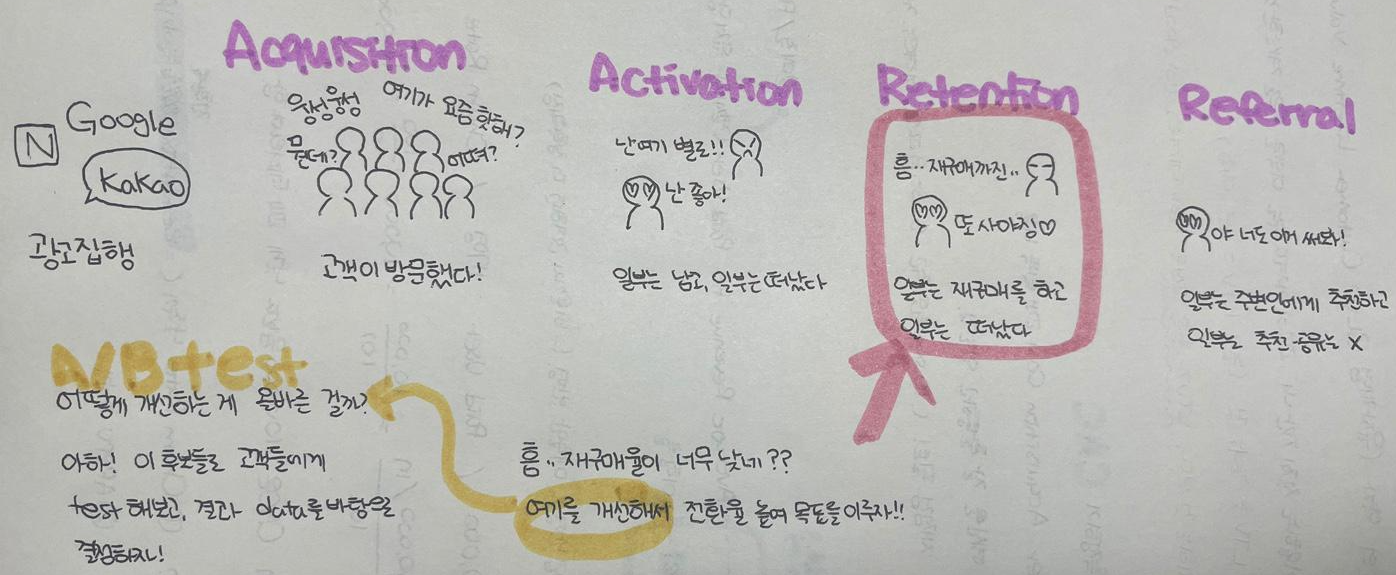 Acquisition
Activation
Retention
Referral
N
Google
Kakao
광고집행
웅성웅성
여기가 요즘 핫해?
뭔데?
어떠?
고객이 방문했다!
난 여기 별로!!
난 좋아!
일부는 남고, 일부는 떠났다
흠.. 재구매까진..
또 사야징♡
일부는 재구매를 하고
일부는 떠났다
야 너도 이거 써봐!
일부는 주변인에게 추천하고
일부는 추천·공유는 X
A/B test
어떻게 개선하는 게 올바른 걸까?
아하! 이 후보들로 고객들에게
test 해보고, 결과 data를 바탕으로
결정하자!
흠.. 재구매율이 너무 낮네??
여기를 개선해서 전환율 높여 목표를 이루자!!